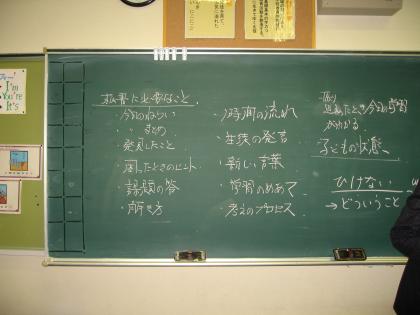 板書に必要なこと
・今日のねらい
・〃 まとめ
・発見したこと
・困ったときのヒント
・課題の答
・解き方
・時間の流れ
・生徒の発言
・新しい言葉
・学習のめあて
・考えのプロセス
見たとき今日の学習
がわかる。
子どもの状態、
ひけない
→どういうこと
I'm
You're
It's